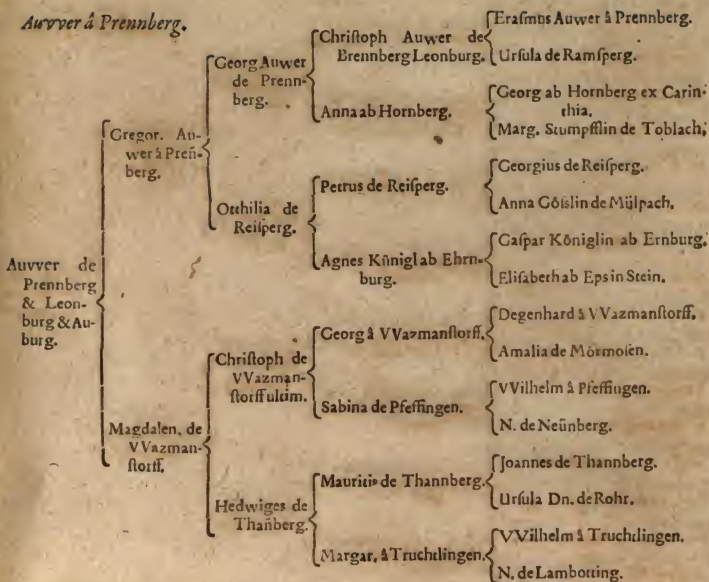 Auvver â Prennberg.
Auvver de
Prennberg
& Leon-
burg & Au-
burg.
Gregor. Au-
wer â Preñ-
berg.
Magdalen. de
VVazman-
ſtorff.
Georg Auwer
de Prenn-
berg.
Otthilia de
Reiſperg.
Chriſtoph de
VVazman-
ſtorff ultim.
Hedwiges de
Thañberg.
Chriſtoph Auwer de
Brennberg Leonburg.
Anna ab Hornberg.
Petrus de Reiſperg.
Agnes Kûnigl ab Ehrn-
burg.
Georg â VVazmanſtorff.
Sabina de Pfeffingen.
Mauritio de Thannberg.
Margar. â Truchtlingen.
Eraſmus Auwer â Prennberg.
Urſula de Ramſperg.
Georg ab Hornberg ex Carin-
thia.
Marg. Stumpfflin de Toblach.
Georgius de Reiſperg.
Anna Göſslin de Mülpach.
Gaſpar Kôniglin ab Ernburg.
Eliſabeth ab Epsin Stein.
Degenhard â VVazmanſtorff.
Amalia de Môrmoſen.
VVilhelm â Pfeffingen.
N. de Neünberg.
Joannes de Thannberg.
Urſula Dn. de Rohr.
VVilhelm â Truchtlingen.
N. de Lambotting.